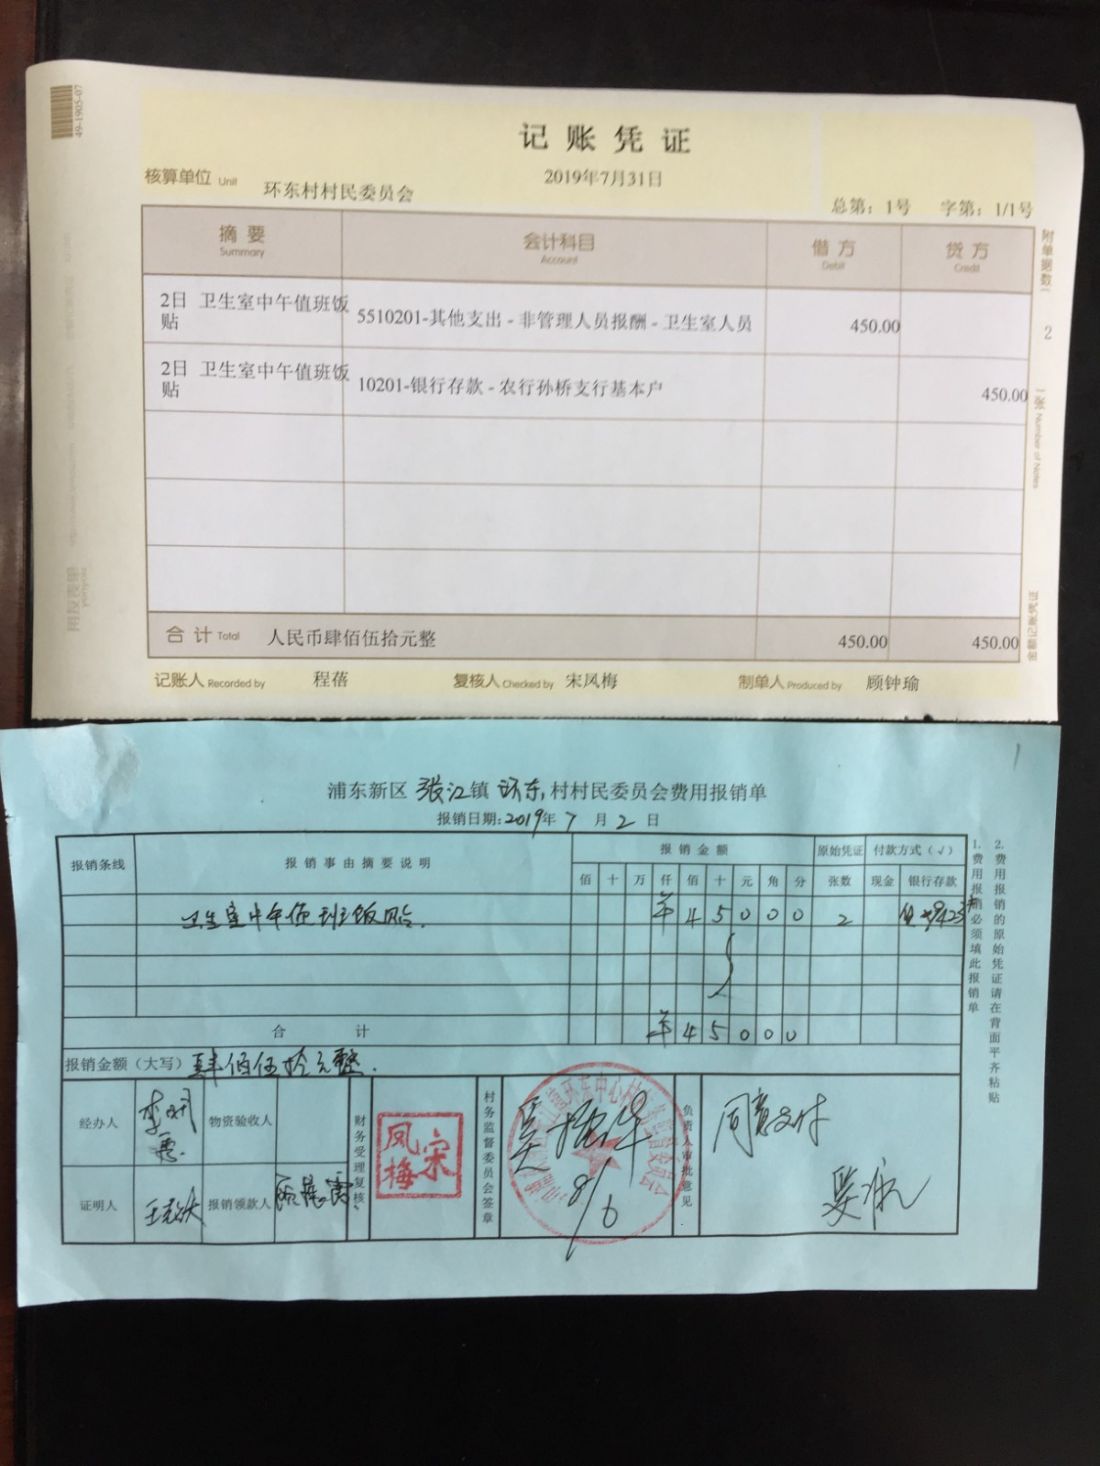 49-1905-07
记账凭证
2019年7月31日
核算单位 Unit 环东村村民委员会
总第：1号 字第：1/1号
摘要 会计科目 借方 贷方
Summary Account Debit Credit
附单据数
2
张
2日 卫生室中午值班饭贴 5510201-其他支出 - 非管理人员报酬 - 卫生室人员 450.00
2日 卫生室中午值班饭贴 10201-银行存款 - 农行孙桥支行基本户 450.00
合计 Total 人民币肆佰伍拾元整 450.00 450.00
金额记账凭证
记账人 Recorded by 程蓓 复核人 Checked by 宋凤梅 制单人 Produced by 顾钟瑜
1
浦东新区 张江 镇 环东 村村民委员会费用报销单
报销日期：2019年 7 月 2 日
报销条线 报销事由摘要说明 报销金额 原始凭证 付款方式（√）
佰 十 万 仟 佰 十 元 角 分 张数 现金 银行存款
卫生室中午值班饭贴. ¥ 4 5 0 0 0 2
合计 ¥ 4 5 0 0 0
报销金额（大写） 肆佰伍拾元整.
经办人 物资验收人 财务受理复核 宋凤梅 村务监督委员会签章 8/6 负责人审批意见 同意支付
证明人 报销领款人
1.费用报销必须填此报销单
2.费用报销的原始凭证请在背面平齐粘贴